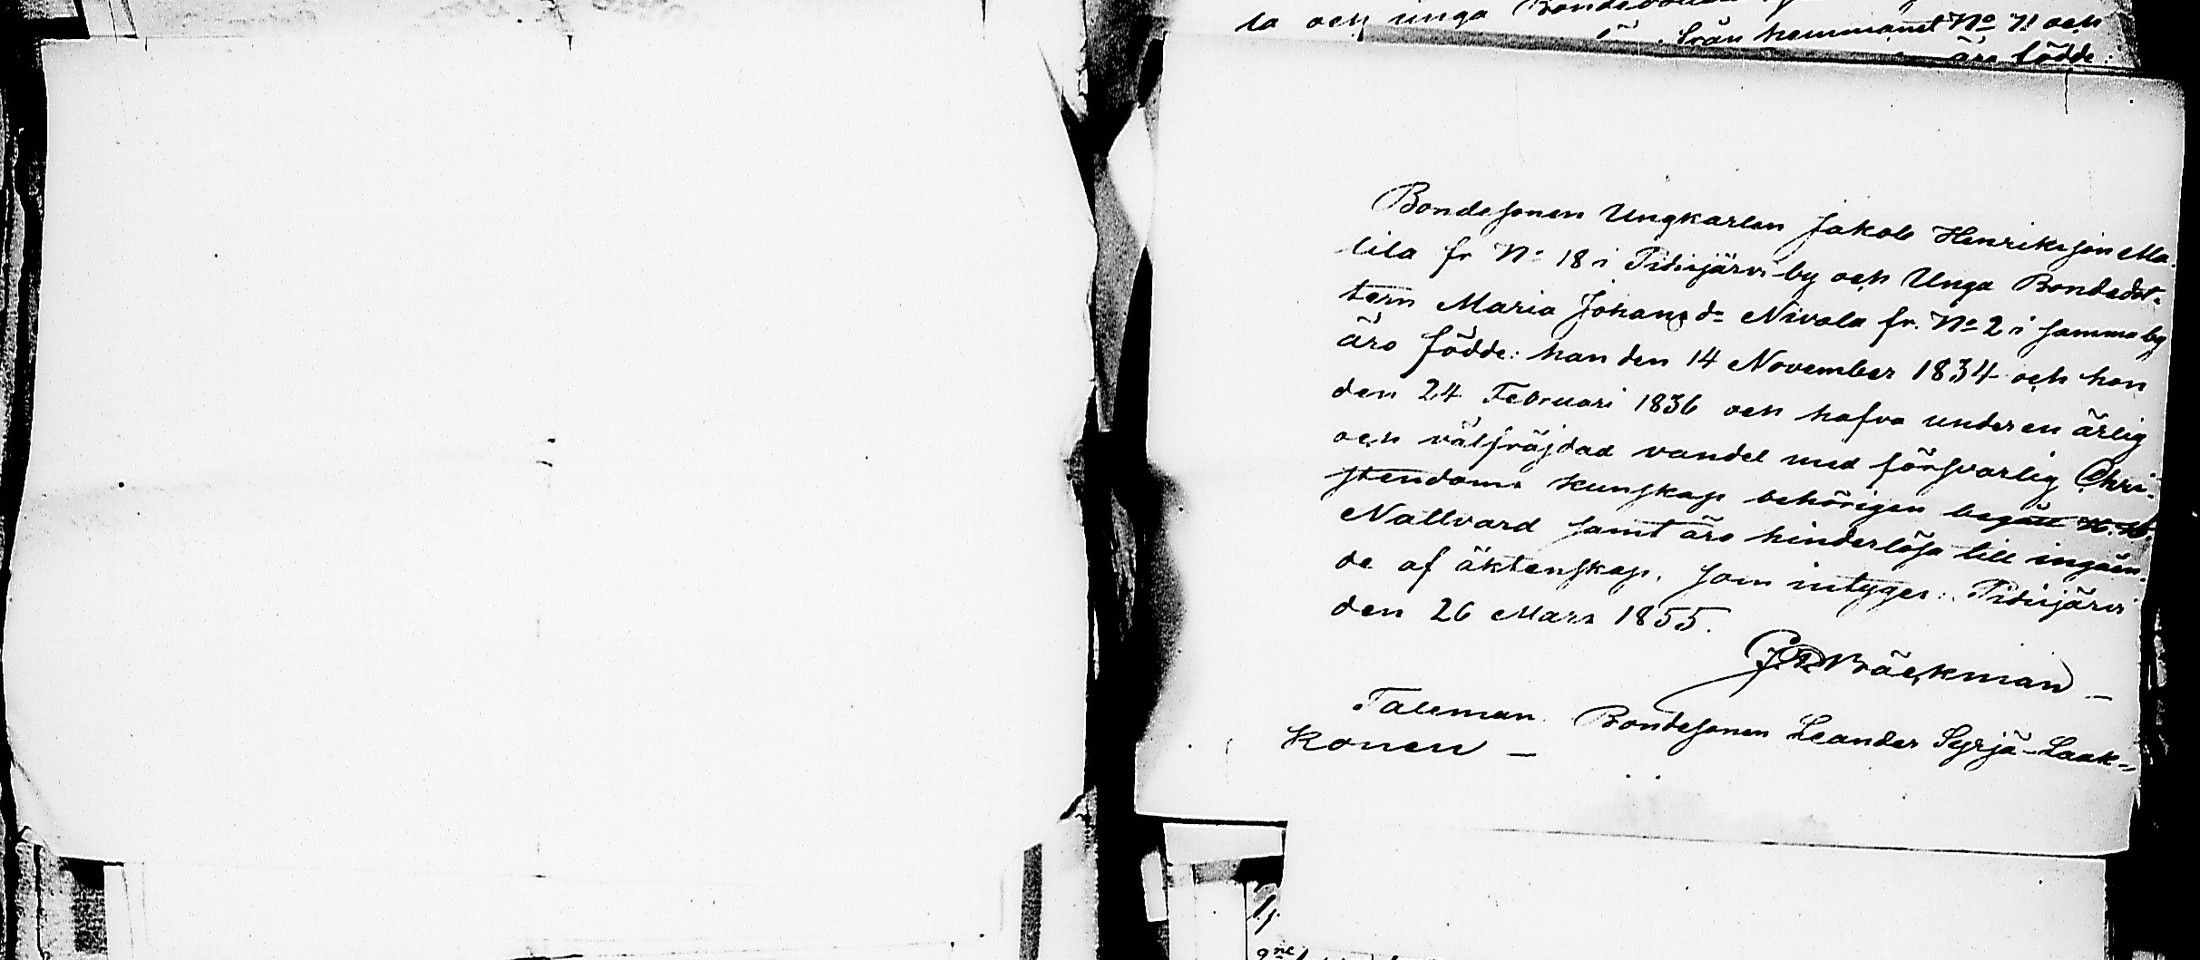 la och unga
från hemmanet No 71 och
äro födde:
Bondesonen Ungkarlen Jakob Henriksson Ma-
tila fr No 18 i Pidisjärvi by och Unga Bondedot-
tern Maria Johansd: Nivala fr. No 2 i samma by
äro födde: han den 14 November 1834 och hon
den 24 Februari 1836 och hafva under en ärlig
och välfräjdad vandel med försvarlig Chri-
stendoms kunskap behörigen begått H. H.
Nattvard samt äro hinderlösa till ingåen-
de af äktenskap, som intyges: Pidisjärvi
den 26 Mars 1855.
Bäckman
Taleman Bondesonen Leander Syrjä-Laak-
konen